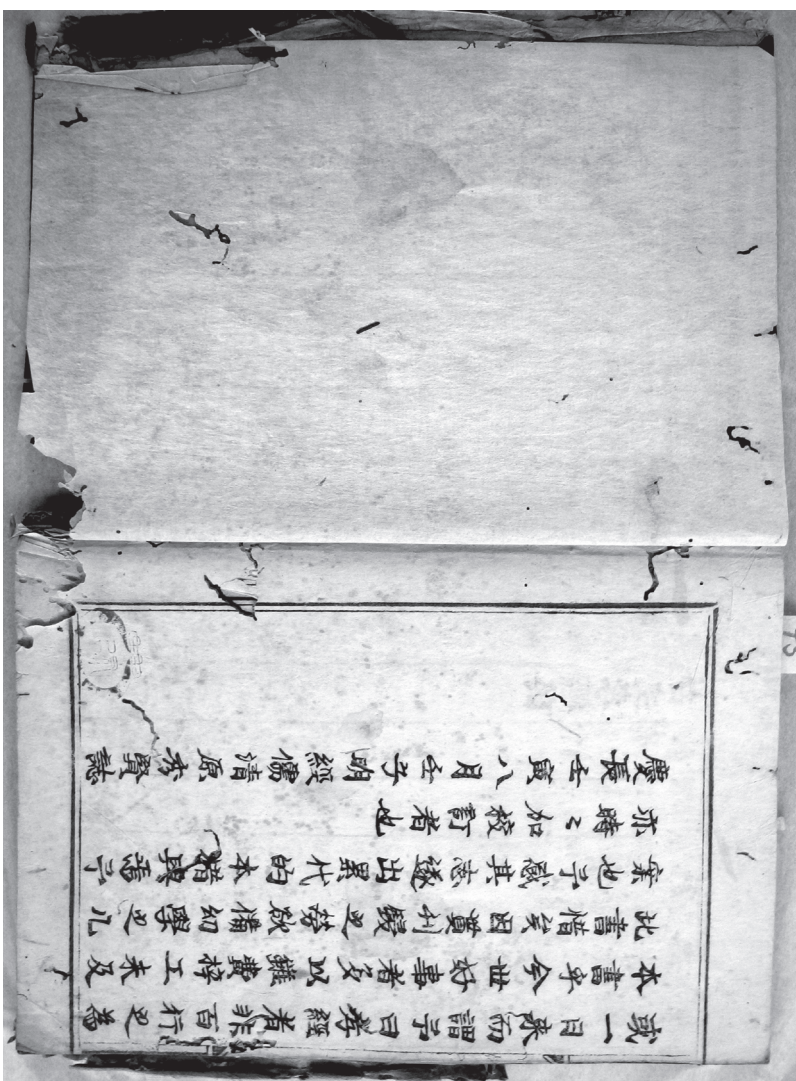 或一日來而謂予曰孝經者非百行之為
本書乎今世好事者多以雖費梓工未及
此書惜哉因費刊鋟之勞欲備幼學之几
案也予感其志遂出累代的本借與焉予
亦時々加校討者也
慶長壬寅八月壬子明經儒清原秀賢誌